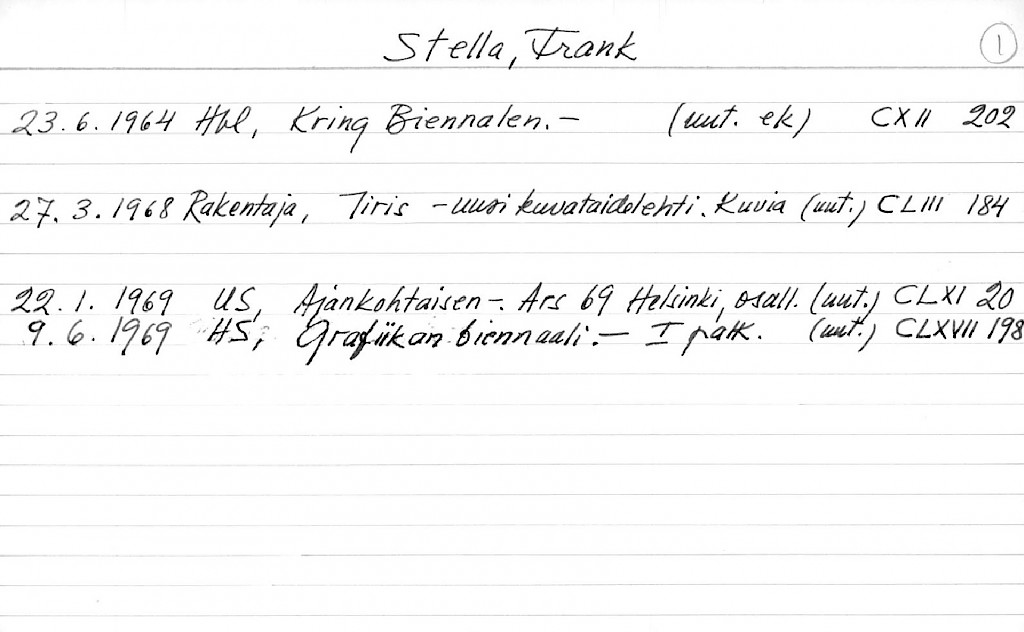 Stella, Frank
1
23. 6. 1964 Hbl, Kring Biennalen. – (uut. ek) CXII 202
27. 3. 1968 Rakentaja, Iiris – uusi kuvataidelehti. Kuvia (uut.) CLIII 184
22. 1. 1969 US, Ajankohtaisen –. Ars 69 Helsinki, osall. (uut.) CLXI 20
9. 6. 1969 HS, Grafiikan biennaali. – I palk. (uut.) CLXVII 198